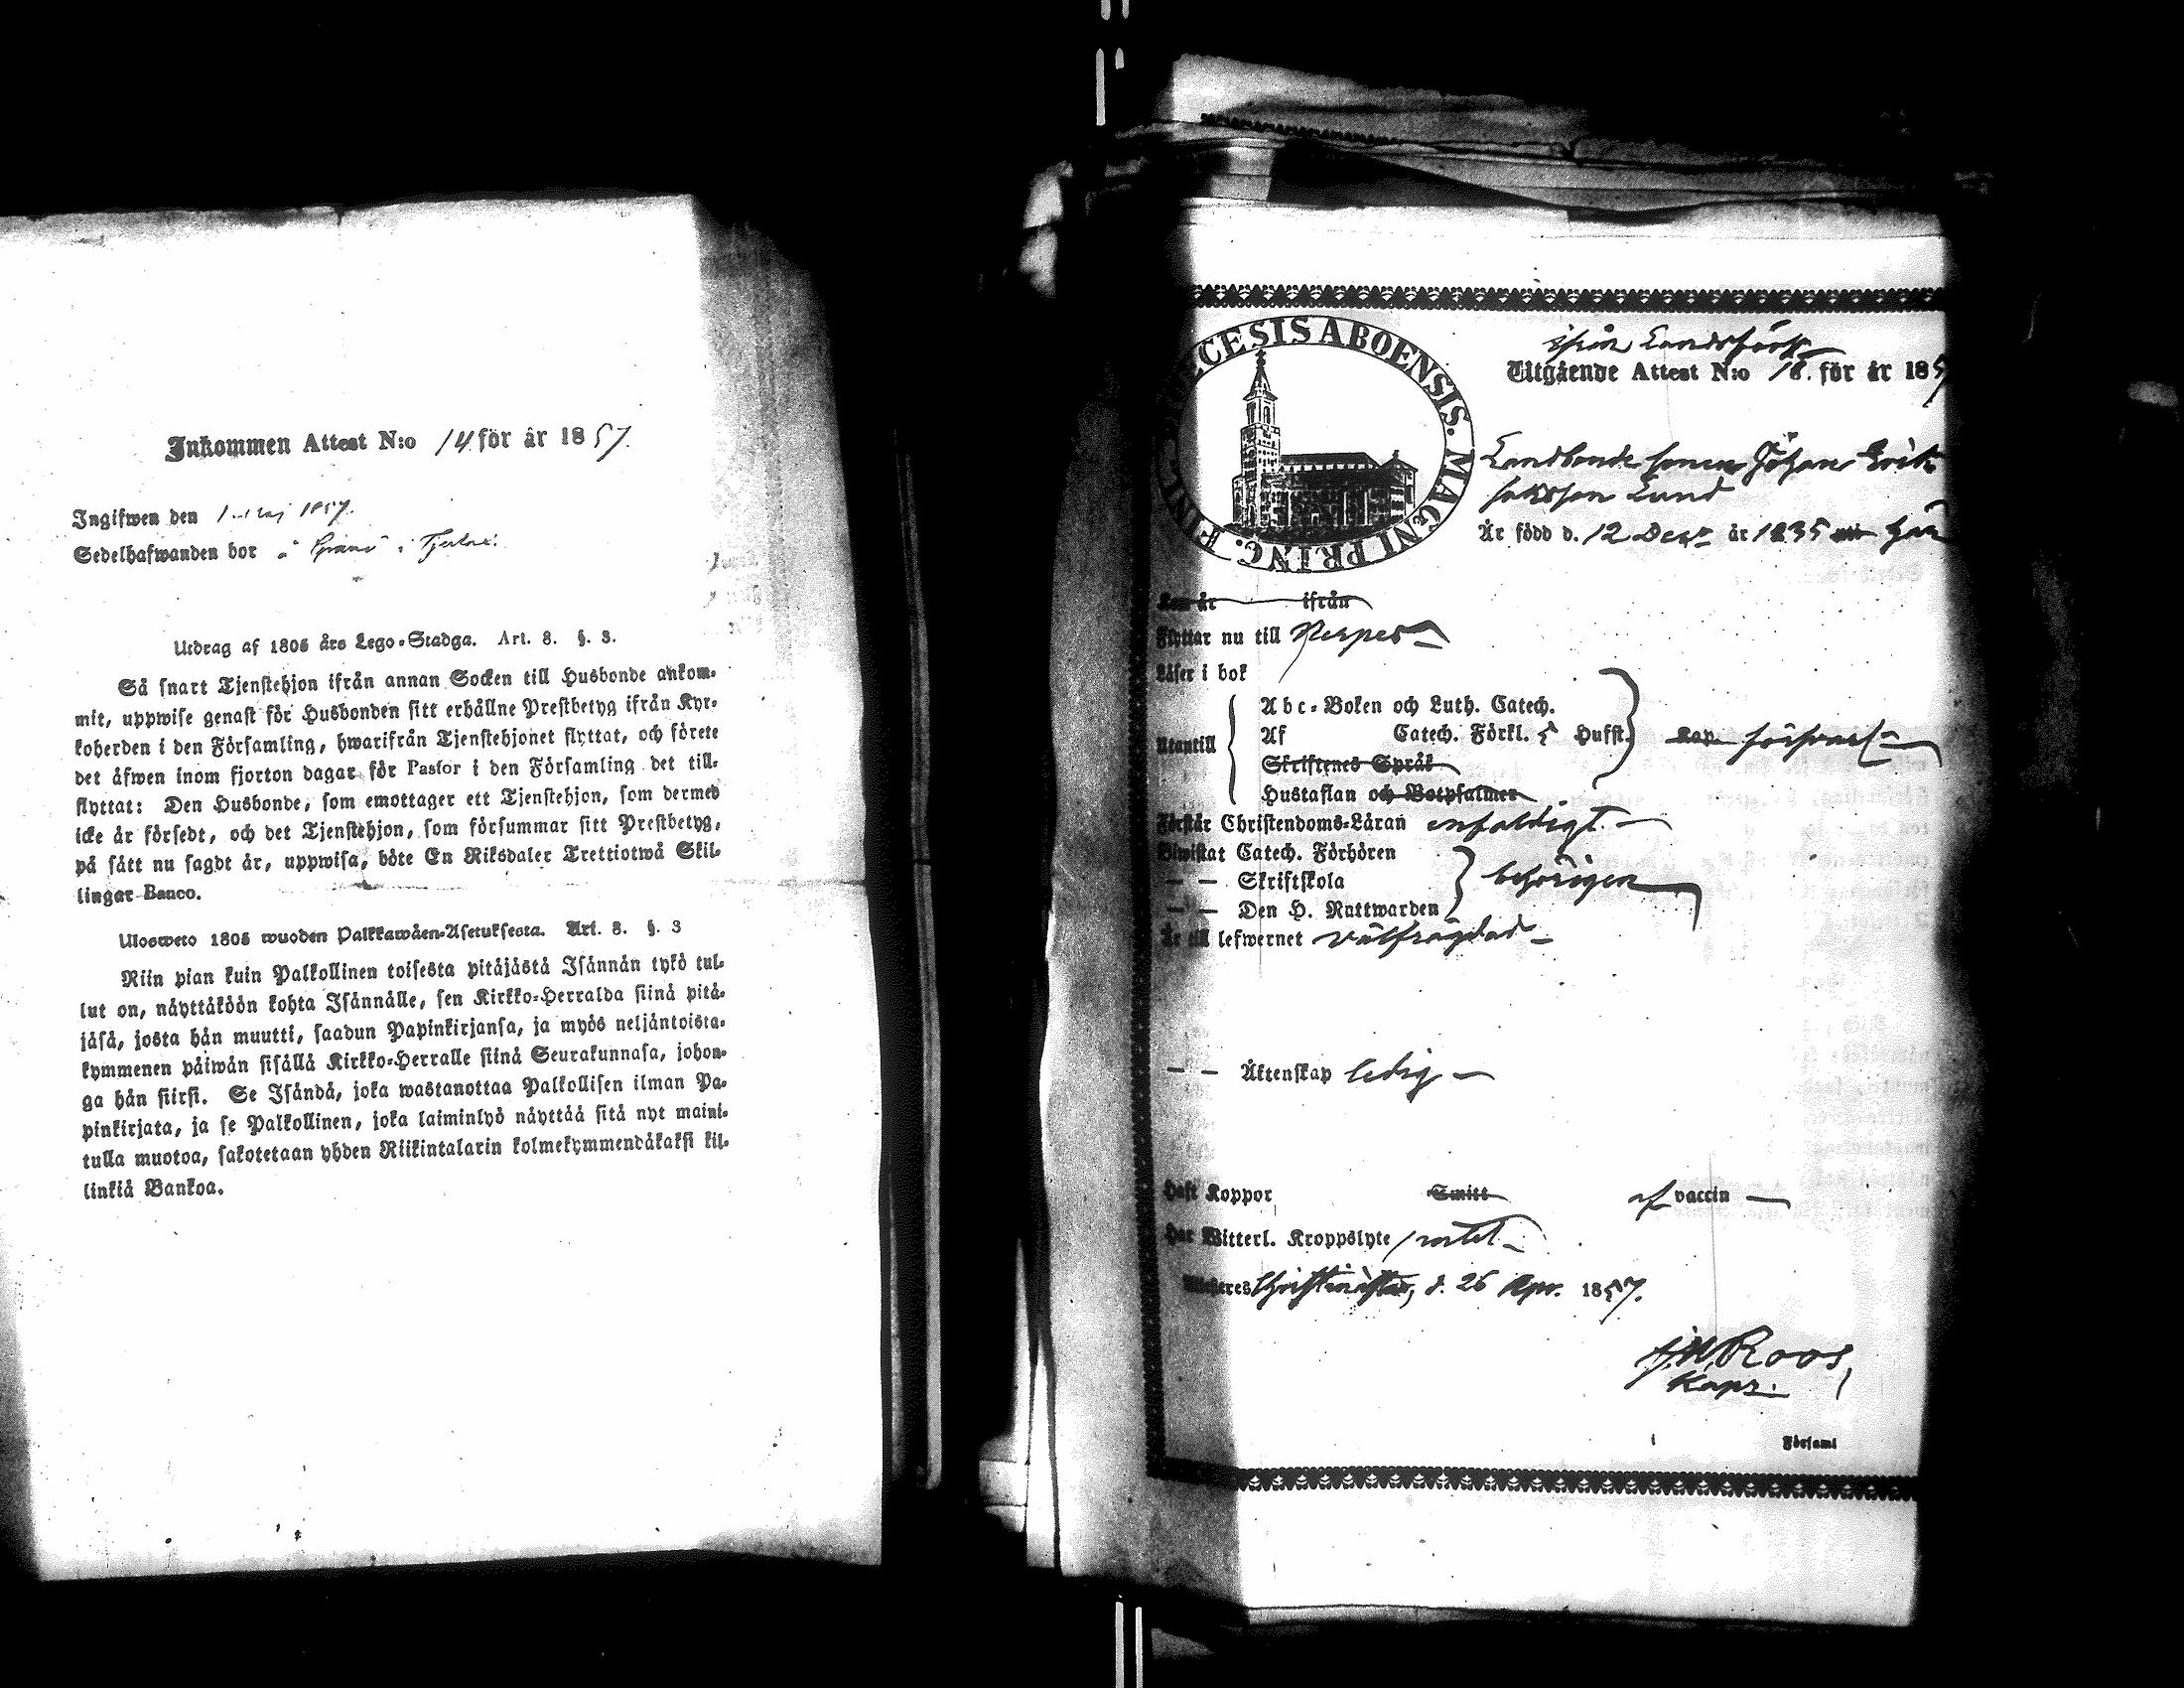 Inkommen Attest N:o 14 för år 1857.
Ingifwen den 1 Maj 1857.
Sedelhafwanden bor å i Tjerlax.
Utdrag af 1805 års Lego-Stadga. Art. 8. §. 3.
Så snart Tjenstehjon ifrån annan Socken till Husbonde ankom-
mit, uppwise genast för Husbonden sitt erhållne Prestbetyg ifrån Kyr-
koherden i den Församling, hwarifrån Tjenstehjonet flyttat, och förete
det äfwen inom fjorton dagar för Pastor i den Församling det till-
flyttat: Den Husbonde, som emottager ett Tjenstehjon, som dermed
icke är försedt, och det Tjenstehjon, som försummar sitt Prestbetyg,
på sätt nu sagdt är, uppwisa, böte En Riksdaler Trettiotwå Skil-
lingar Banco.
Ulosweto 1805 wuoden Palkkawäen-Asetuksesta. Art. 8. §. 3
Niin pian kuin Palkollinen toisesta pitäjästä Isännän tykö tul-
lut on, näyttäköön kohta Isännälle, sen Kirkko-Herralda siinä pitä-
jäsä, josta hän muutti, saadun Papinkirjansa, ja myös neljäntoista-
kymmenen päiwän sisällä Kirkko-Herralle siinä Seurakunnasa, johon-
ga hän siirsi. Se Isändä, joka wastanottaa Palkollisen ilman Pa-
pinkirjata, ja se Palkollinen, joka laiminlyö näyttää sitä nyt maini-
tulla muotoa, sakotetaan yhden Riikintalarin kolmekymmendäkaksi kil-
linkiä Bankoa.
CESIS ABOENSIS. MAGNI PRINC. FINL.
ifrån Landsförs
Utgående Attest N:o 18. för år 185
Landbonde sonen Johan Erik
Jakosson Lund
Är född d. 12 Decr år 1835 här
Kom år ifrån
Flyttar nu till Nerpes
Läser i bok
Utantill
Abc-Boken och Luth. Catech.
Af Catech. Förkl. 5 Hufst. Kap. försvarl.
Skriftenes Språk
Hustaflan och Botpsalmer
Förstår Christendoms-Läran enfaldigt
Biwistat Catech. Förhören
— — Skriftskola behörigen
— — Den H. Nattwarden
Är till lefwernet välfrägdad
— — Äktenskap ledig
Haft Koppor Smitt af vaccin
Har Witterl. Kroppslyte intet
Christinæstad, d. 26 Apr. 1857.
Roos,
Kapn.
Församl